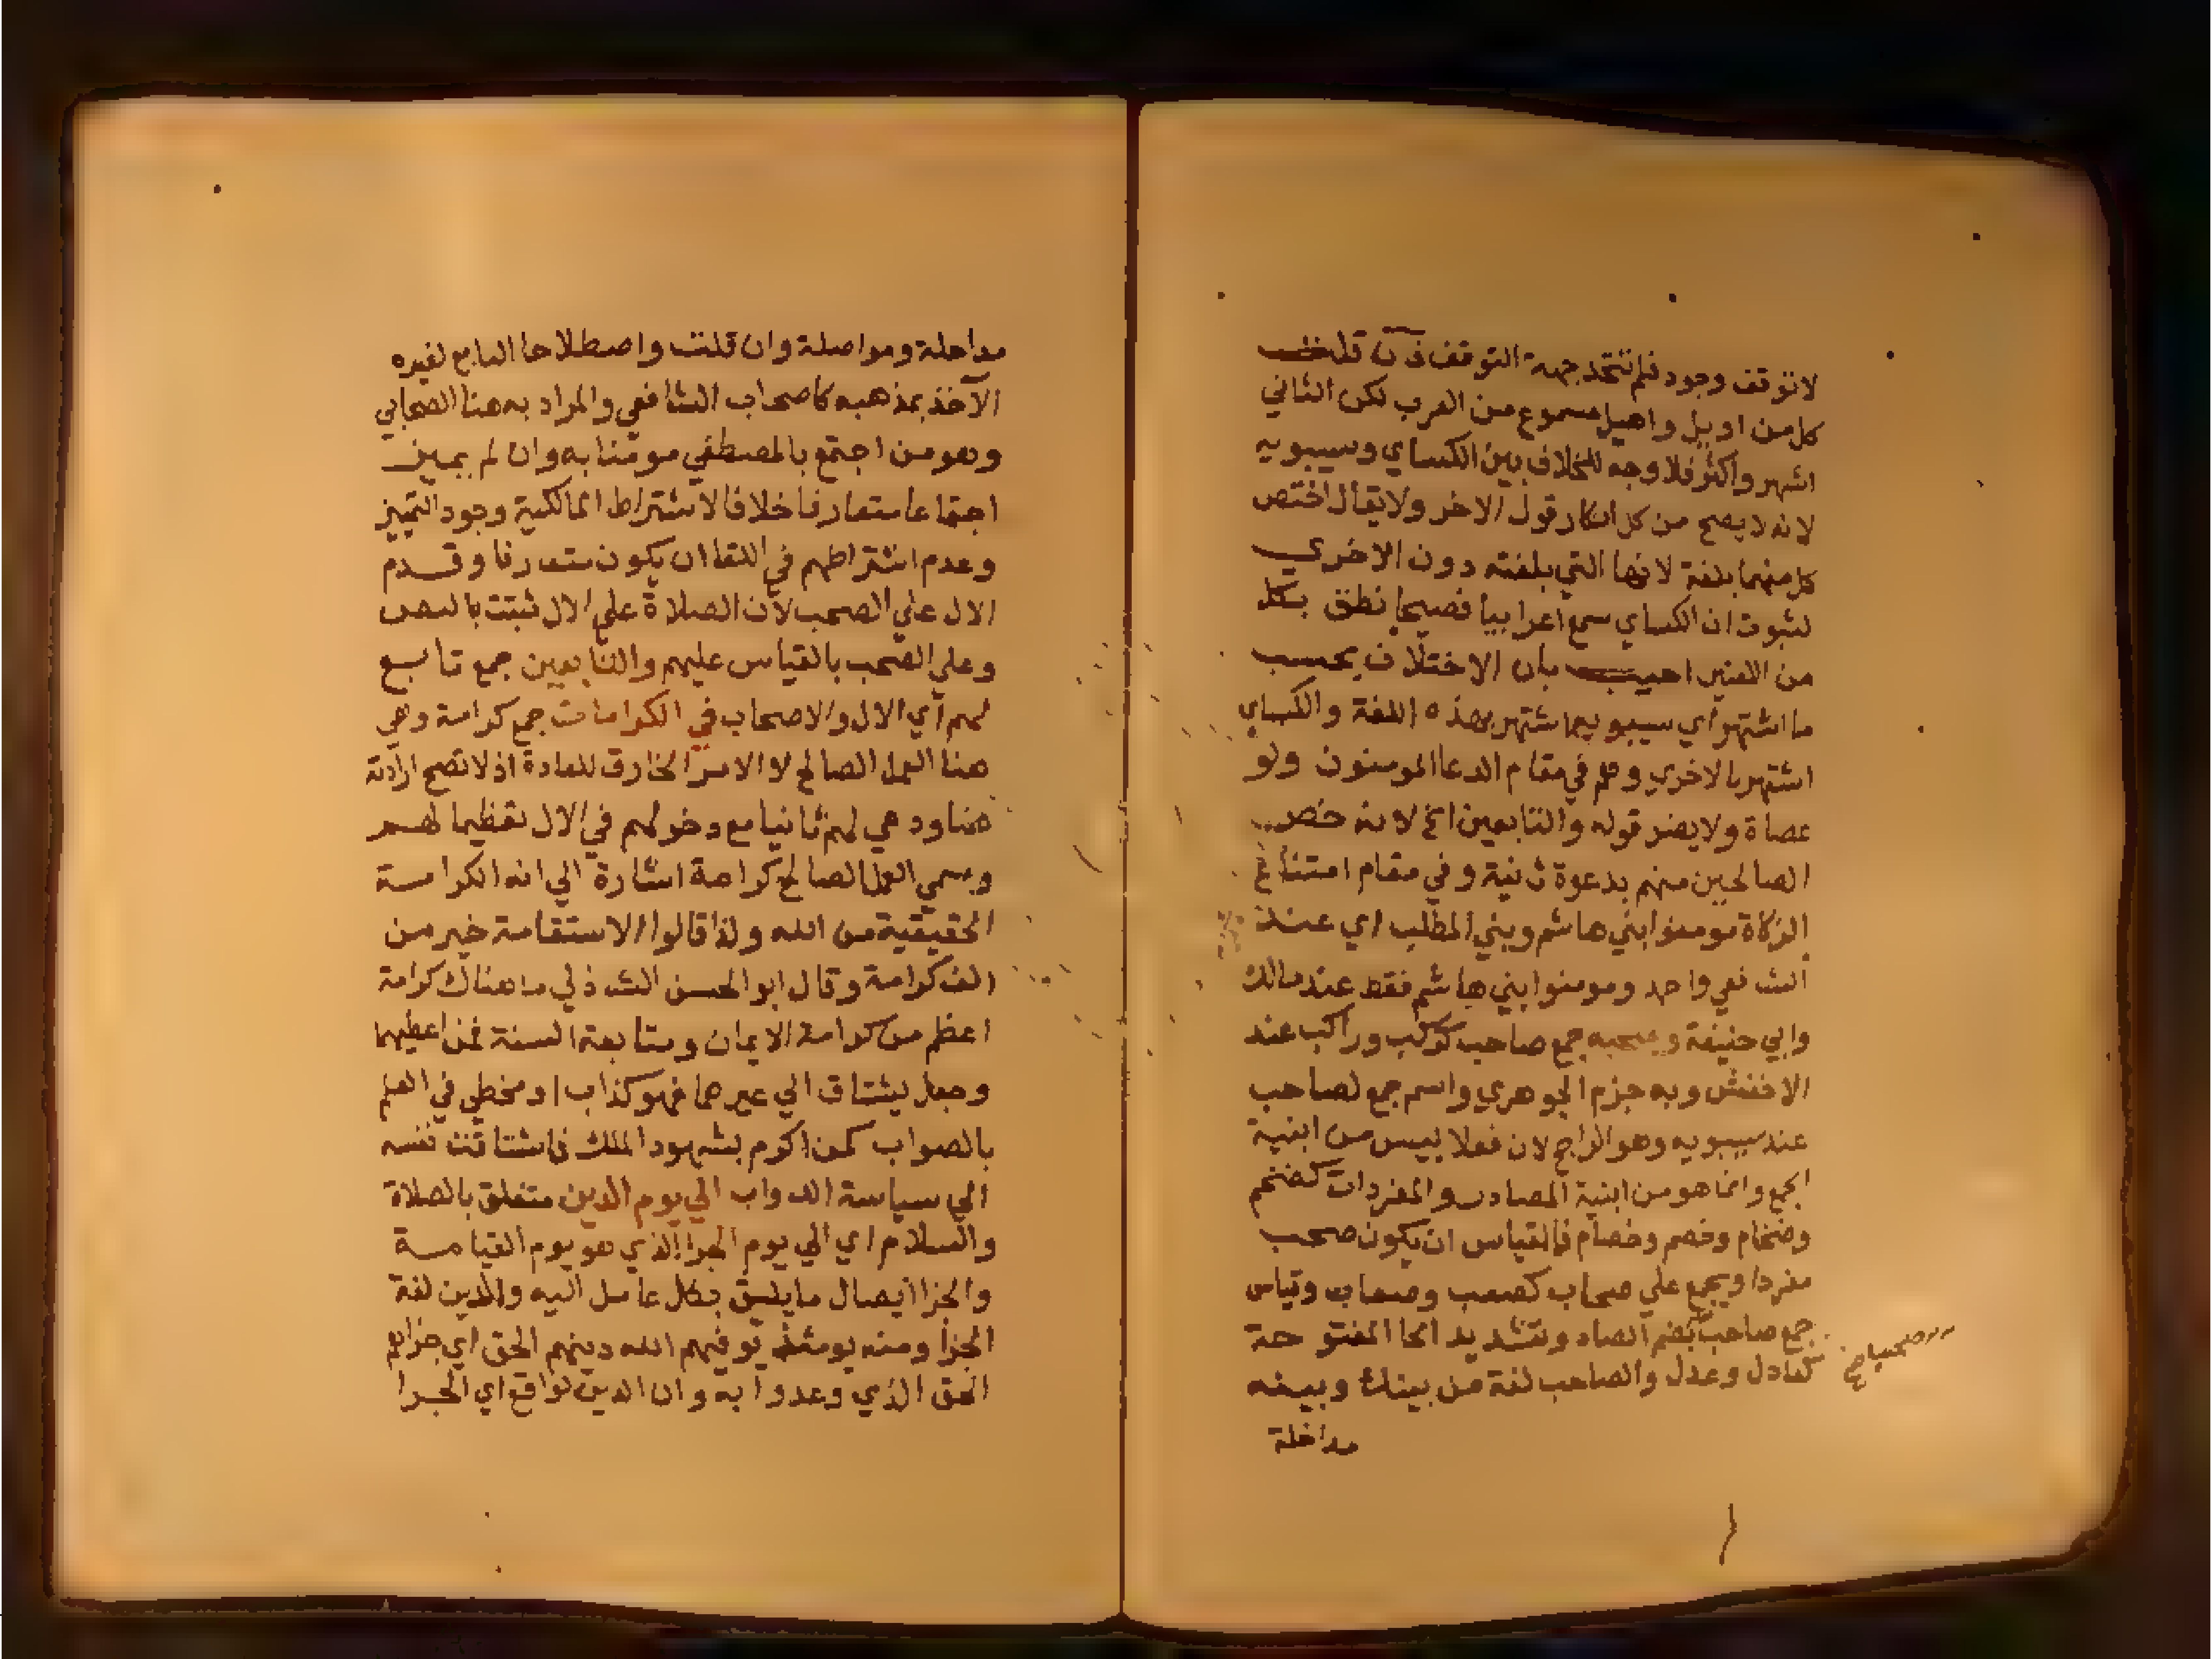 لا توقف وجود فلم تتحد جهة التوقف فان قلت
كل من اويل واهيل مسموع من العرب لكن الثاني
اشهر واكثر فلا وجه للخلاف بين الكساي وسيبويه
لانه لا يصح من كل انكار قول الاخر ولا يقال اختص
كل منهما بلغة لانها التي بلغته دون الاخري
لثبوت ان الكساي سمع اعرابيا فصيحا نطق بكل
من اللغتين اجيب بان الاختلاف بحسب
ما اشتهر اي سيبويه اشتهر بهذه اللغة والكساي
اشتهر بالاخري وهم في مقام الدعا المومنون ولو
عصاة ولا يضر قوله والتابعين الخ لانه خص
الصالحين منهم بدعوة ثانية وفي مقام امتناع
الزكاة مومنوا بني هاشم وبني المطلب اي عند
الشافعي واحمد ومومنوا بني هاشم فقط عند مالك
وابي حنيفة وصحبه جمع صاحب كركب وراكب عند
الاخفش وبه جزم الجوهري واسم جمع لصاحب
عند سيبويه وهو الراجح لان فعلا ليس من ابنية
الجمع وانما هو من ابنية المصادر والمفردات كضخم
وضخام وخصم وخصام فالقياس ان يكون صحب
مفردا ويجمع علي صحاب كصعب وصعاب وقياس
جمع صاحب بضم الصاد وتشديد الحا المفتوحة
كعادل وعدل والصاحب لغة من بينك وبينه
مداخلة
مداخلة ومواصلة وان قلت واصطلاحا التابع لغيره
الآخذ بمذهبه كاصحاب الشافعي والمراد به هنا الصحابي
وهو من اجتمع بالمصطفي مومنا به وان لم يميز
اجتماعا متعارفا خلافا لاشتراط المالكية وجود التمييز
وعدم اشتراطهم في اللقا ان يكون متعارفا وقدم
الال علي الصحب لأن الصلاة علي الال ثبتت بالنص
وعلي الصحب بالقياس عليهم والتابعين جمع تابع
لهم اي الال والاصحاب في الكرامات جمع كرامة وهي
هنا العمل الصالح لا الامر الخارق للعادة اذ لا تصح ارادته
هنا ودعي لهم ثانيا مع دخولهم في الال تعظيما لهم
ويسمي العمل الصالح كرامة اشارة الي انه الكرامة
الحقيقية من الله ولذا قالوا الاستقامة خير من
الف كرامة وقال ابو الحسن الشاذلي ما هناك كرامة
اعظم من كرامة الايمان ومتابعة السنة فمن اعطيهما
وجعل يشتاق الي غيرهما فهو كذاب او مخطي في العلم
بالصواب كمن اكرم بشهود الملك فاشتاقت نفسه
الي سياسة الدواب الي يوم الدين متعلق بالصلاة
والسلام اي الي يوم الجزا الذي هو يوم القيامة
والجزا ايصال ما يليق بكل عامل اليه والدين لغة
الجزا ومنه يومئذ يوفيهم الله دينهم الحق اي جزاهم
الحق الذي وعدوا به وان الدين لواقع اي الجزا